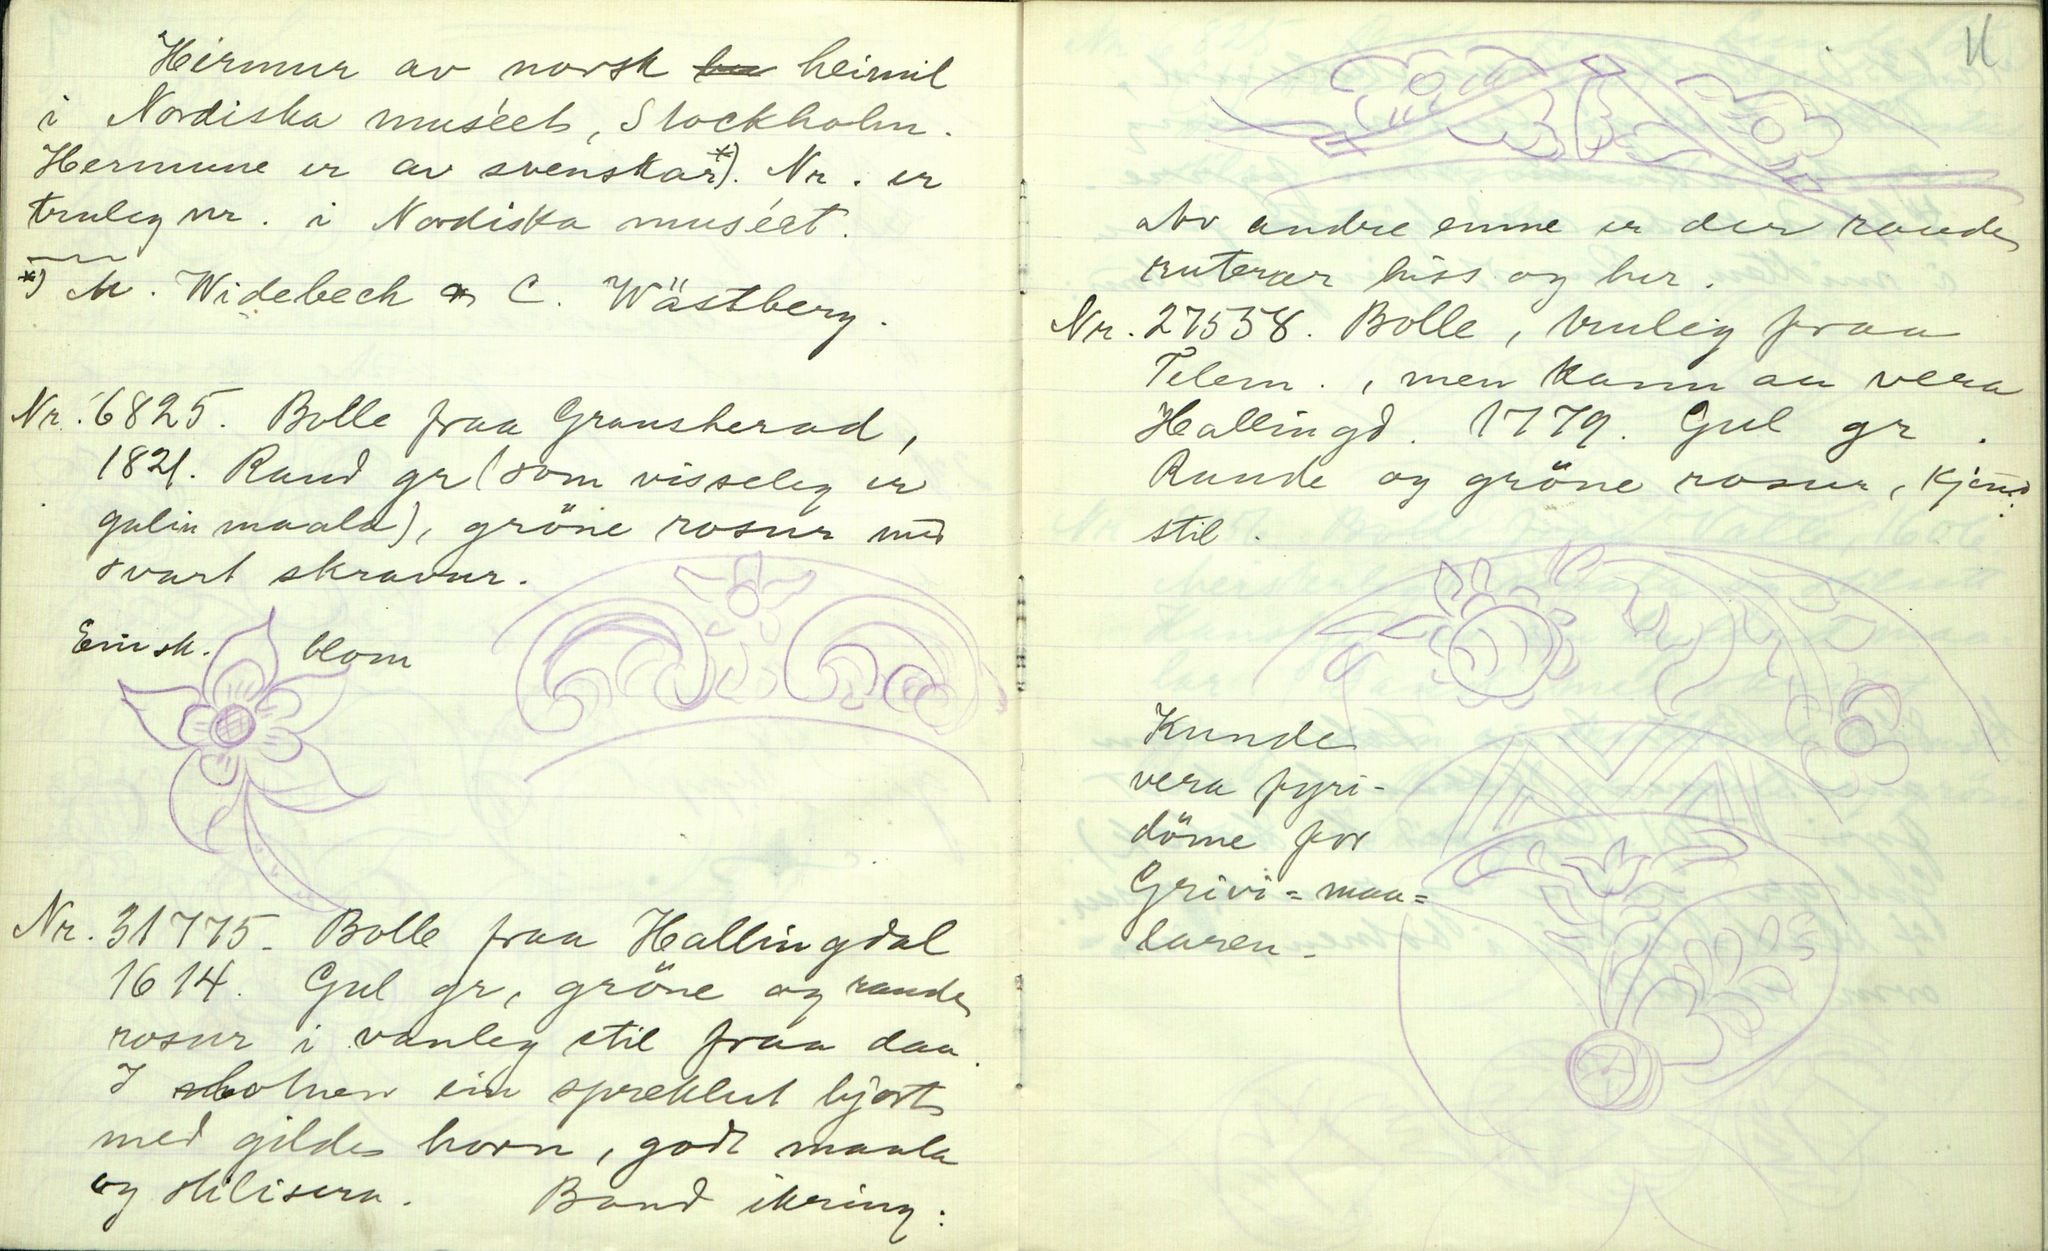 Hermur av norsk heimil
i Nordiska muséet, Stockholm.
Hermune er av svenskar*). Nr. er
truleg nr. i Nordiska muséet.
*) M. Widebeck og C. Wästberg.
Nr. 6825. Bolle fraa Gransherad,
1821. Raud gr (som visseleg er
gulin maala), gröne rosur med
svart skravur.
Einsk. blom
Nr. 31775. Bolle fraa Hallingdal
1614. Gul gr, gröne og raude
rosur i vanleg stil fraa daa.
I botnen ein spreklut hjort
med gilde horn, godt maala
og stilisera. Band ikring:
11
Av andre emne er der raude
ruterer hiss og her.
Nr. 27558. Bolle, truleg fraa
Telem., men kann au vera
Hallingd. 1779. Gul gr.
Raude og gröne rosur, kjend
stil.
Kunde
vera fyri-
döme for
Grivi=maa=
laren.